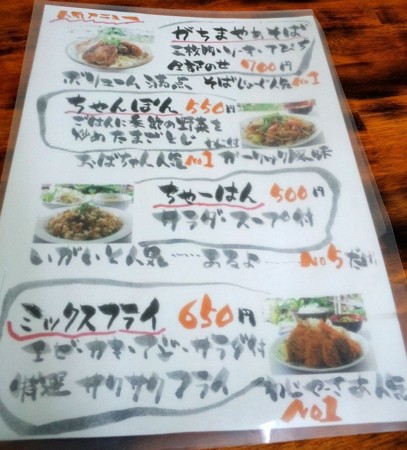 人気メニュー
がちまやぁそば
三枚肉・ソーキ・てびち
全部のせ 900円
ボリューム満点 そばじょーぐ人気No1
ちゃんぽん 550円
ごはんに季節の野菜を
炒めたまごとじ
おばちゃん人気No1 ガーリック風味
ちゃーはん 500円
サラダ・スープ付
いがいと人気……あるよ……No5だけど
ミックスフライ 650円
エビ・カキ・
サラダ付
特選 サクサクフライ
人気
No1